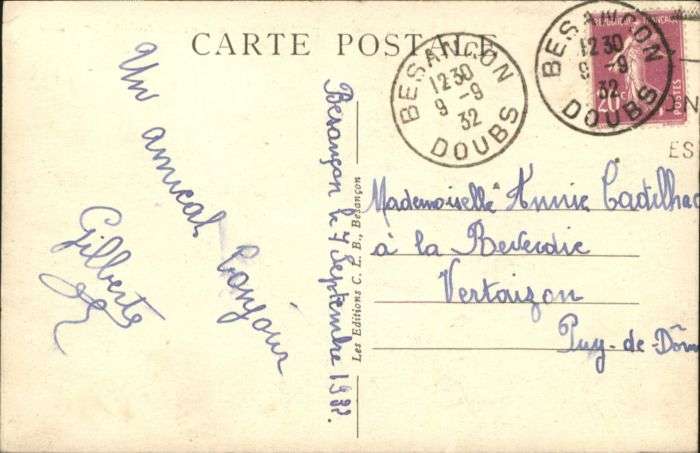 CARTE POSTALE
Un amical bonjour
Gilberte
Besançon le 7 Septembre 1932.
Les Editions C. L. B., Besançon
BESANÇON
12 30
9 -9
32
DOUBS
BESANÇON
12 30
9 -9
32
DOUBS
REPUBLIQUE FRANÇAISE
20c
POSTES
ES
Mademoiselle Annie Cadilhac
à la
Vertaizon
Puy-de-Dôm